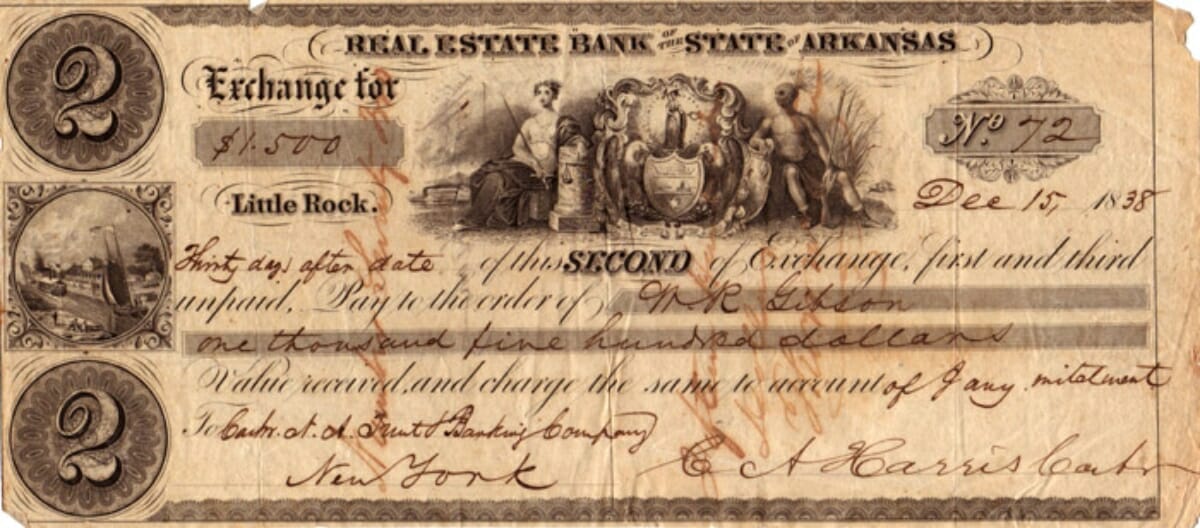 2
REAL ESTATE BANK OF THE STATE OF ARKANSAS
Exchange for
$1.500
No 72
Little Rock.
Dec 15, 1838
Thirty days after date of this SECOND of Exchange, first and third
unpaid, Pay to the order of W. R. Gibson
one thousand five hundred dollars
Value received, and charge the same to account of
To Cashr. N. A. Trust & Banking Company
New York
C A Harris Cashr
2